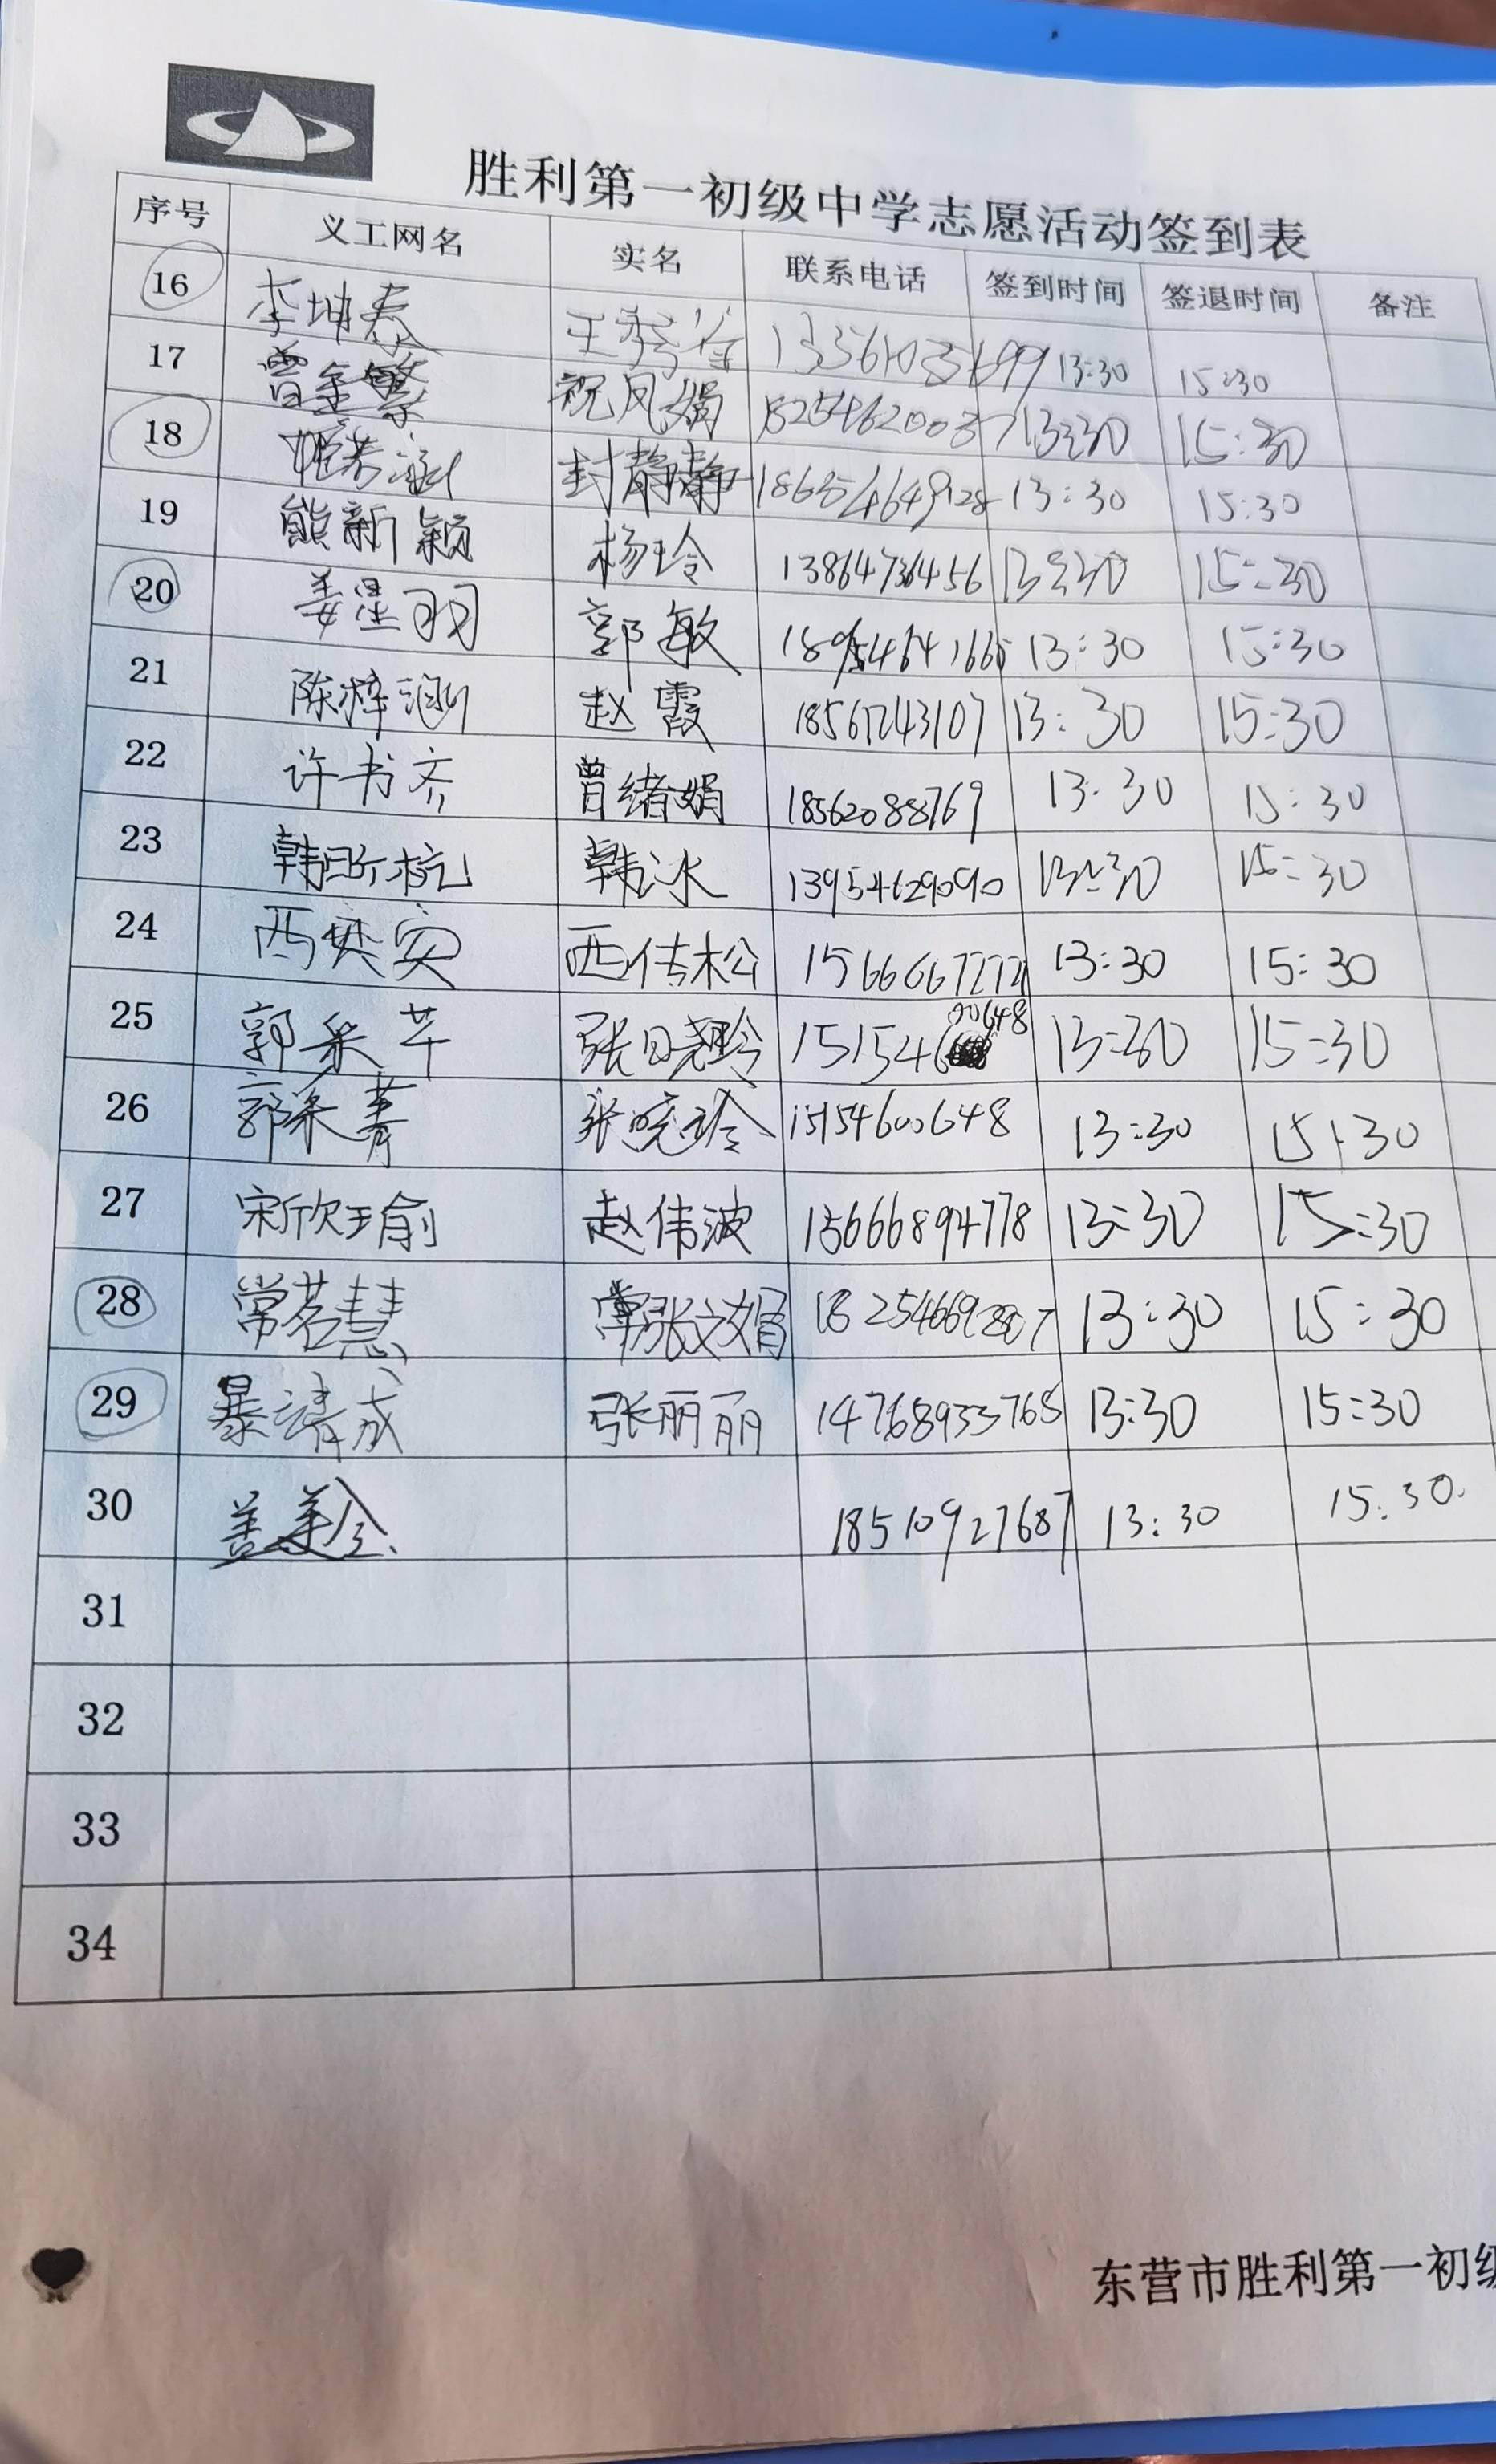 胜利第一初级中学志愿活动签到表
序号 义工网名 实名 联系电话 签到时间 签退时间 备注
16 李坤泰 13:30 15:30
17 祝凤娟 18254620037 13:30 15:30
18 封静静 13:30 15:30
19 熊新颖 杨玲 13864736456 13:30 15:30
20 姜星羽 郭敏 18954641665 13:30 15:30
21 陈梓涵 赵霞 18561243107 13:30 15:30
22 许书齐 曾绪娟 18562088769 13:30 15:30
23 韩 韩冰 13954629090 13:30 15:30
24 西 西传松 13:30 15:30
25 郭采芊 张晓玲 15154600648 13:30 15:30
26 郭采菁 张晓玲 15154600648 13:30 15:30
27 宋欣瑜 赵伟波 13666894778 13:30 15:30
28 常茗慧 张文娟 13:30 15:30
29 暴靖成 张丽丽 14768933768 13:30 15:30
30 18510927687 13:30 15:30.
31
32
33
34
东营市胜利第一初级